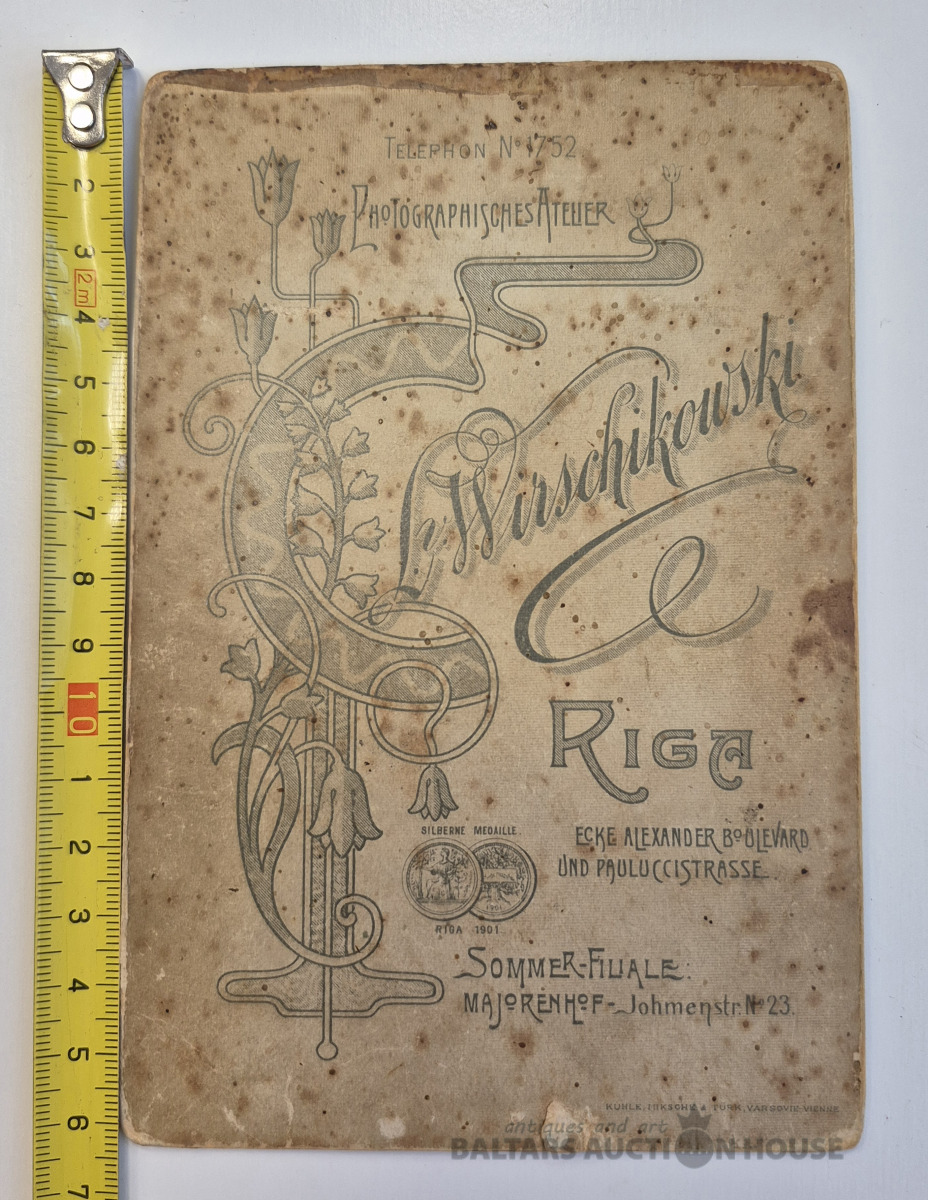 TELEPHON No 1752.
PHOTOGRAPHISCHES ATELIER
L. Wirschikowski
RIGA
SILBERNE MEDAILLE.
ECKE ALEXANDER BOULEVARD
UND PAULUCCISTRASSE.
1901
RIGA 1901.
SOMMER-FILIALE:
MAJORENHOF-Johmenstr. No 23.
KUHLE, MIKSCHE & TÜRK, VARSOVIE-VIENNE
antiques and art
BALTARS AUCTION HOUSE
2
3
2m
4
5
6
7
8
9
10
1
2
3
4
5
6
7